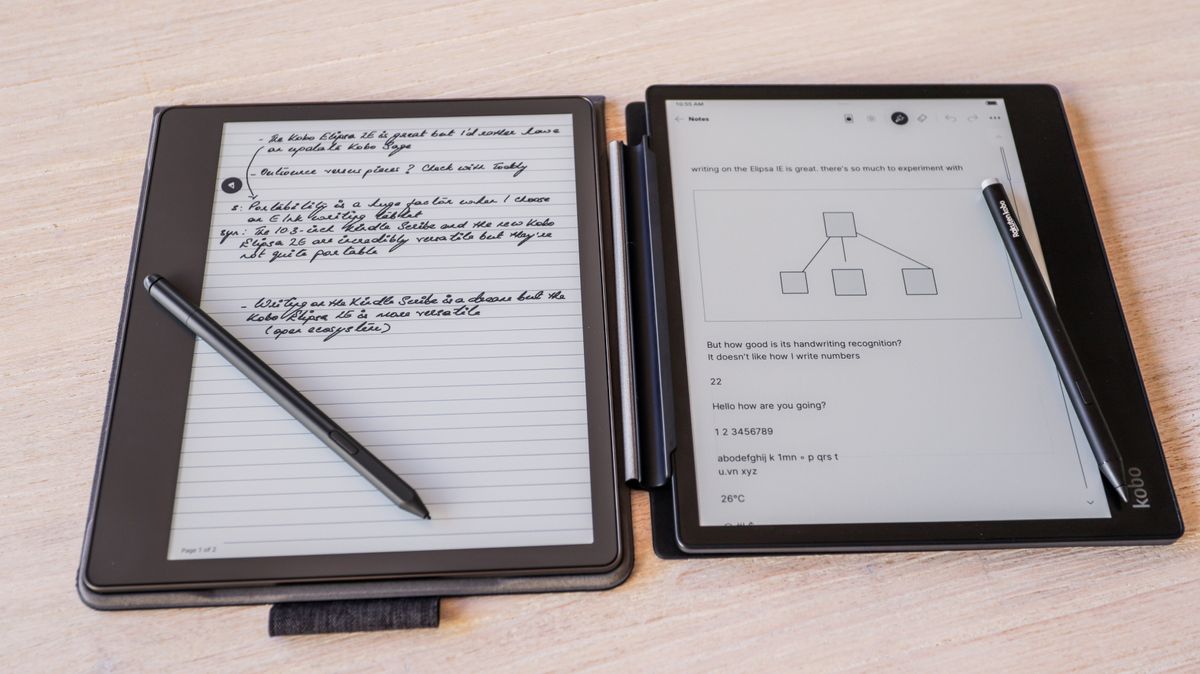 - The Kobo Elipsa 2E is great but I'd rather have
an update Kobo Sage
- Outsource versus pieces? Check with Toddly
s: Portability is a huge factor when I choose
an E Ink writing tablet
syn: The 10.3-inch Kindle Scribe and the new Kobo
Elipsa 2E are incredibly versatile but they're
not quite portable
- Writing on the Kindle Scribe is a dream but the
Kobo Elipsa 2E is more versatile
(open ecosystem)
Page 1 of 2
10:55 AM
Notes
writing on the Elipsa IE is great. there's so much to experiment with
But how good is its handwriting recognition?
It doesn't like how I write numbers
22
Hello how are you going?
1 2 3456789
abodefghij k 1mn • p qrs t
u.vn xyz
26°C
Rakuten kobo
kobo